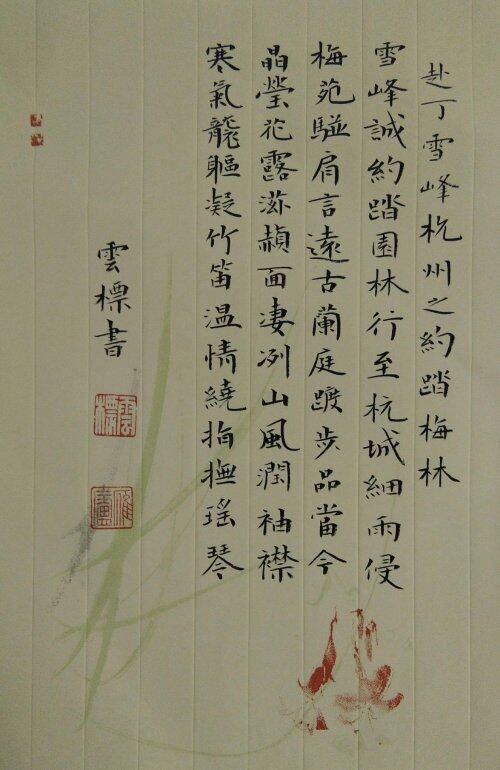 赴丁雪峰杭州之約踏梅林
雪峰誠約踏園林行至杭城細雨侵
梅苑駢肩言遠古蘭庭踱步品當今
晶瑩花露滋頳面凄冽山風潤袖襟
寒氣襲軀凝竹笛溫情繞指撫瑤琴
雲標書
雲標